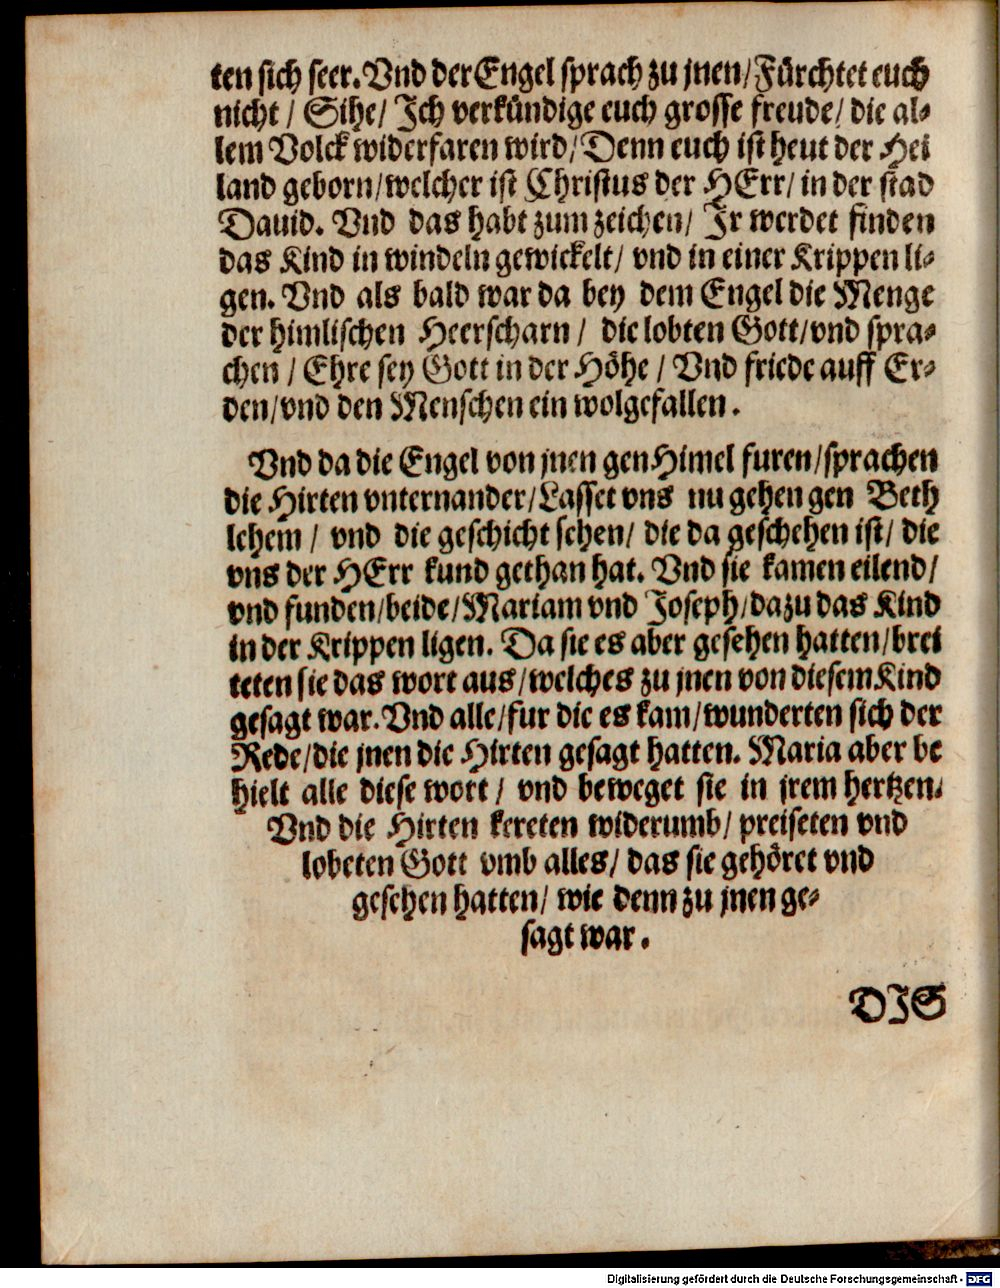 ten sich seer. Vnd der Engel sprach zu jnen/ Fürchtet euch
nicht / Sihe/ Ich verkündige euch grosse freude/ die al⸗
lem Volck widerfaren wird/ Denn euch ist heut der Hei
land geborn/ welcher ist Christus der HErr/ in der stad
Dauid. Vnd das habt zum zeichen/ Ir werdet finden
das Kind in windeln gewickelt/ vnd in einer Krippen li⸗
gen. Vnd als bald war da bey dem Engel die Menge
der himlischen Heerscharn / die lobten Gott/ vnd spra⸗
chen / Ehre sey Gott in der Höhe / Vnd friede auff Er⸗
den/ vnd den Menschen ein wolgefallen.
Vnd da die Engel von jnen gen Himel furen/ sprachen
die Hirten vnternander/ Lasset vns nu gehen gen Beth
lehem / vnd die geschicht sehen/ die da geschehen ist/ die
vns der HErr kund gethan hat. Vnd sie kamen eilend/
vnd funden/ beide/ Mariam vnd Joseph/ dazu das Kind
in der Krippen ligen. Da sie es aber gesehen hatten/ brei
teten sie das wort aus/ welches zu jnen von diesem Kind
gesagt war. Vnd alle/ fur die es kam/ wunderten sich der
Rede/ die jnen die Hirten gesagt hatten. Maria aber be
hielt alle diese wort / vnd beweget sie in jrem hertzen/
Vnd die Hirten kereten widerumb/ preiseten vnd
lobeten Gott vmb alles/ das sie gehöret vnd
gesehen hatten/ wie denn zu jnen ge⸗
sagt war.
DIS
Digitalisierung gefördert durch die Deutsche Forschungsgemeinschaft - DFG